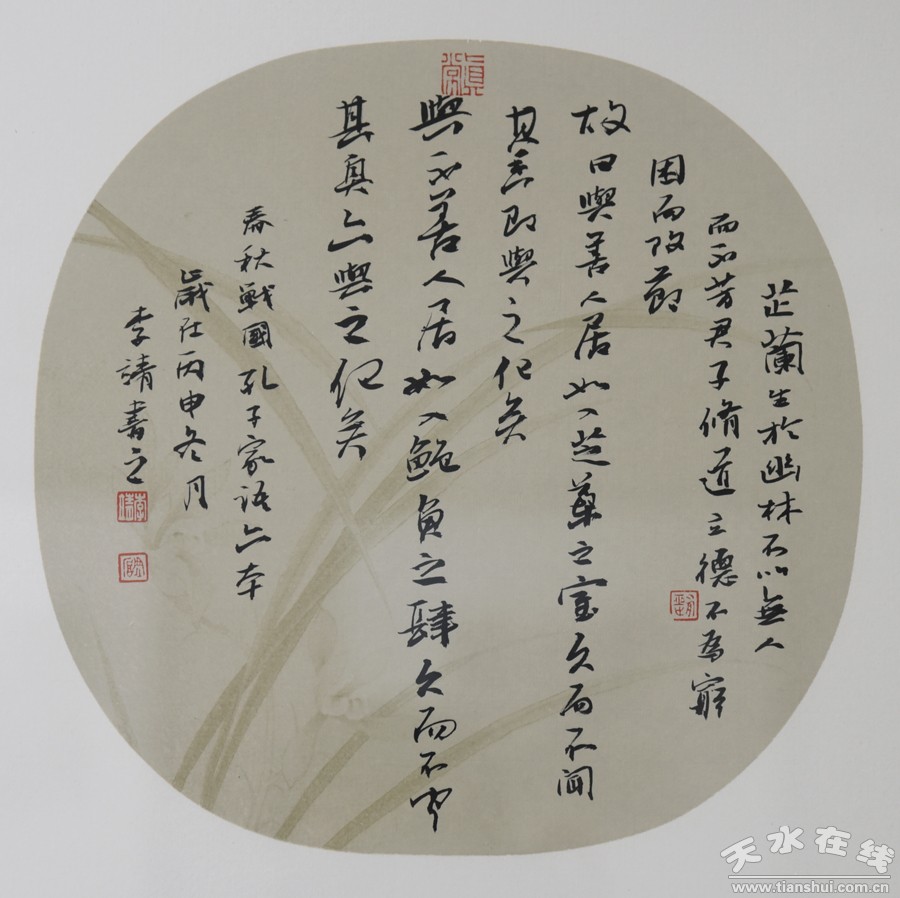 芷蘭生於幽林不以無人
而不芳君子脩道立德不為窮
困而改節
故曰與善人居如入芝蘭之室久而不聞
其香即與之化矣
與不善人居如入鮑魚之肆久而不聞
其臭亦與之化矣
春秋戰國孔子家語六本
歲在丙申冬月
李靖書之
天水在线
www.tianshui.com.cn